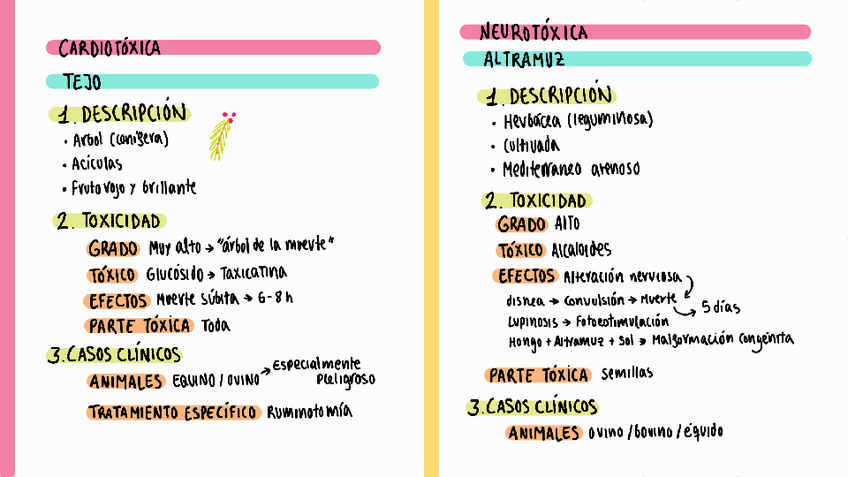 CARDIOTÓXICA
TEJO
1. DESCRIPCIÓN
• Arbol (conífera)
• Acículas
• Fruto rojo y brillante
2. TOXICIDAD
GRADO Muy alto → "árbol de la muerte"
TÓXICO Glucósido → Taxicatina
EFECTOS Muerte súbita → 6-8 h
PARTE TÓXICA Toda
3. CASOS CLÍNICOS
ANIMALES EQUINO / OVINO → Especialmente
peligroso
TRATAMIENTO ESPECÍFICO Ruminotomía
NEUROTÓXICA
ALTRAMUZ
1. DESCRIPCIÓN
• Herbácea (leguminosa)
• Cultivada
• Mediterraneo arenoso
2. TOXICIDAD
GRADO Alto
TÓXICO Alcaloides
EFECTOS Alteración nerviosa
disnea → convulsión → Muerte → 5 días
LUPINOSIS → Fotoestimulación
Hongo + Altramuz + Sol → Malformación congénita
PARTE TÓXICA semillas
3. CASOS CLÍNICOS
ANIMALES ovino / bovino / équido